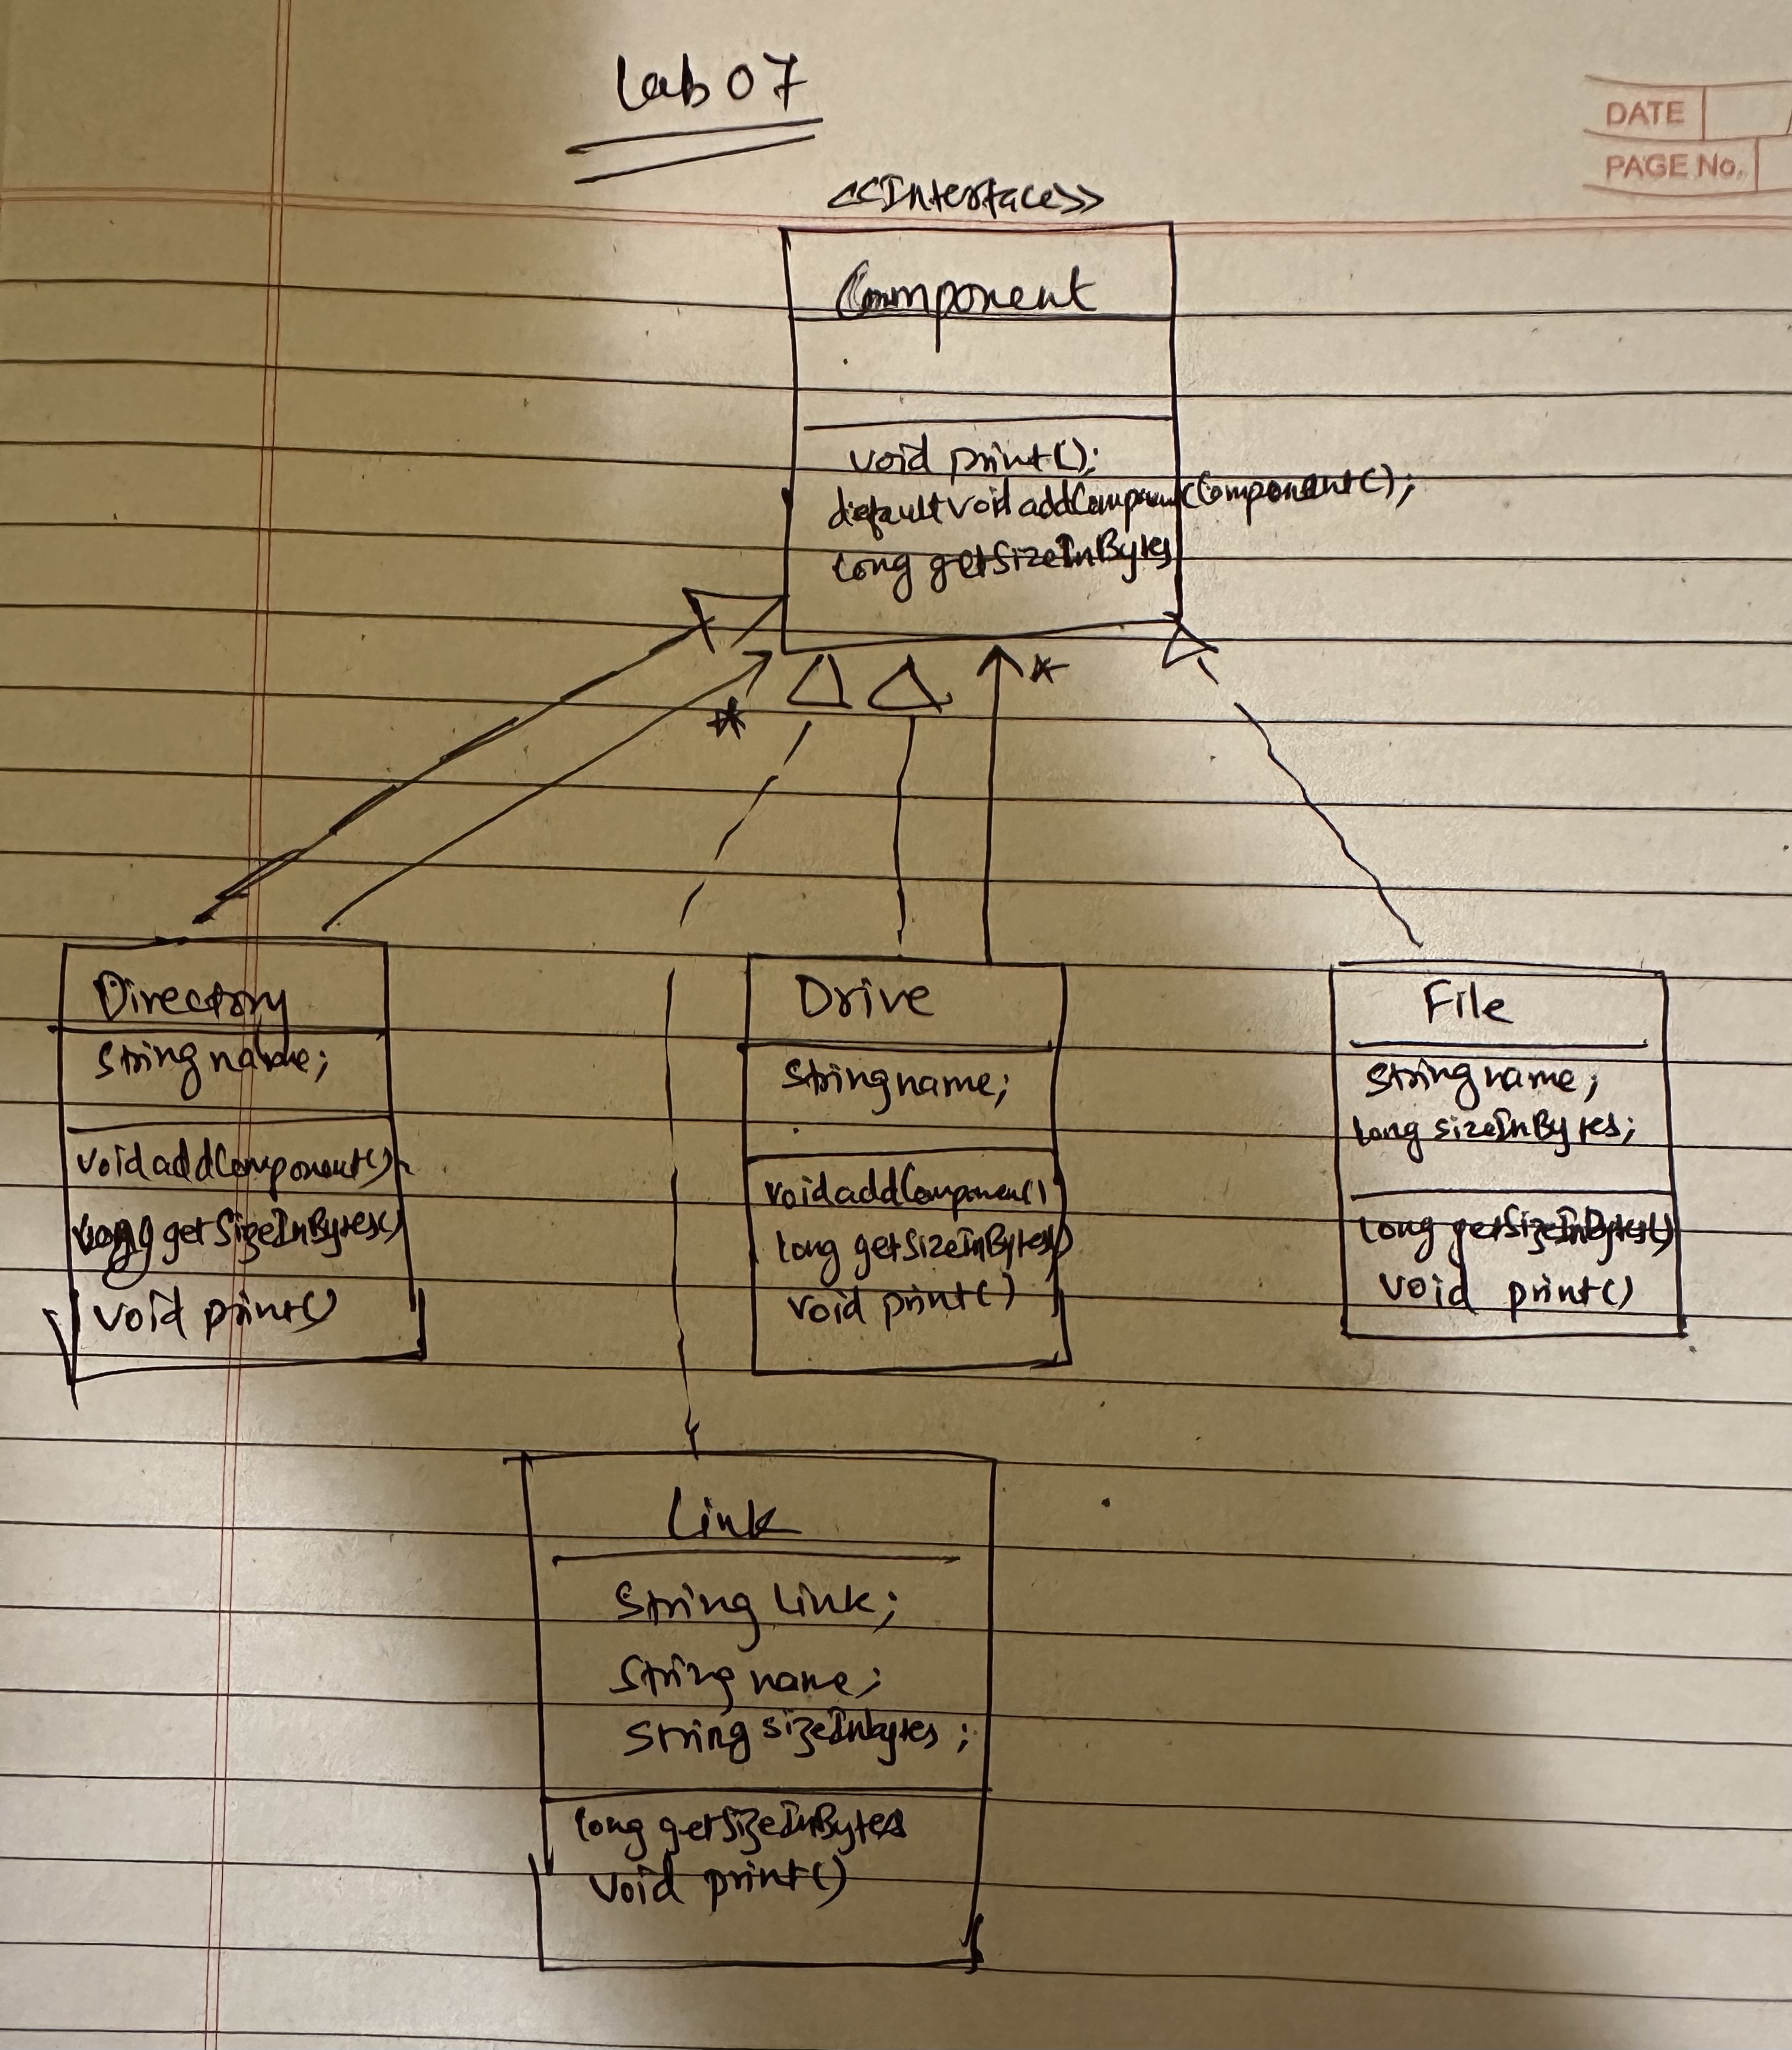 Lab 07
DATE
PAGE No.
<<Interface>>
Component
void print();
default void addComponent(Component());
long getSizeInBytes
*
*
Directory
String name;
void addComponent()
long getSizeInBytes()
void print()
Drive
String name;
void addComponent()
long getSizeInBytes()
void print()
File
String name;
long sizeInBytes;
long getSizeInBytes()
void print()
Link
String Link;
String name;
String sizeInbytes;
long getSizeInBytes
void print()